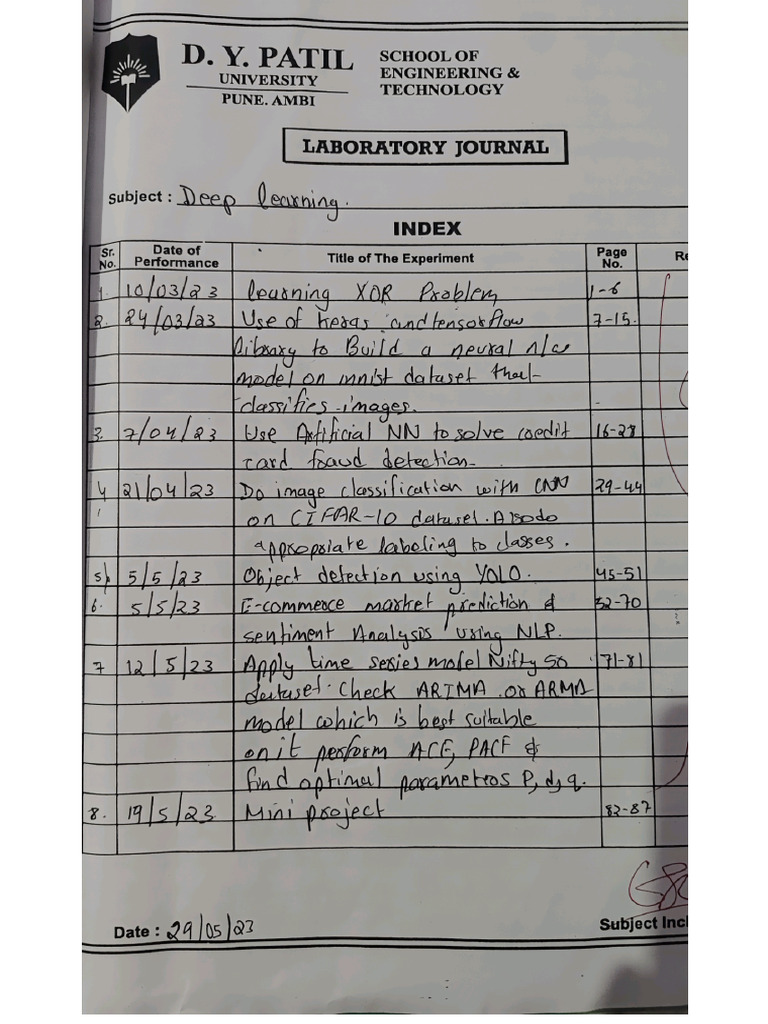 D. Y. PATIL
UNIVERSITY
PUNE. AMBI
SCHOOL OF
ENGINEERING &
TECHNOLOGY
LABORATORY JOURNAL
Subject : Deep learning.
INDEX
Sr. No. Date of Performance Title of The Experiment Page No. Re
1. 10/03/23 learning XOR Problem 1-6
2. 24/03/23 Use of keras and tensorflow 7-15.
library to Build a neural n/w
model on mnist dataset that
classifies images.
3. 7/04/23 Use Artificial NN to solve coedit 16-28
card fraud detection
4 21/04/23 Do image classification with CNN 29-44
on CIFAR-10 dataset. Also do
appropriate labeling to classes.
5) 5/5/23 Object detection using YOLO. 45-51
6. 5/5/23 E-commerce market prediction & 52-70
sentiment Analysis using NLP.
7 12/5/23 Apply time series model Nifty 50 71-81
dataset. Check ARIMA or ARMA
model which is best suitable
on it perform ACF, PACF &
find optimal parameters P, d, q.
8. 19/5/23 Mini project 82-87
Date : 29/05/23
Subject Incl